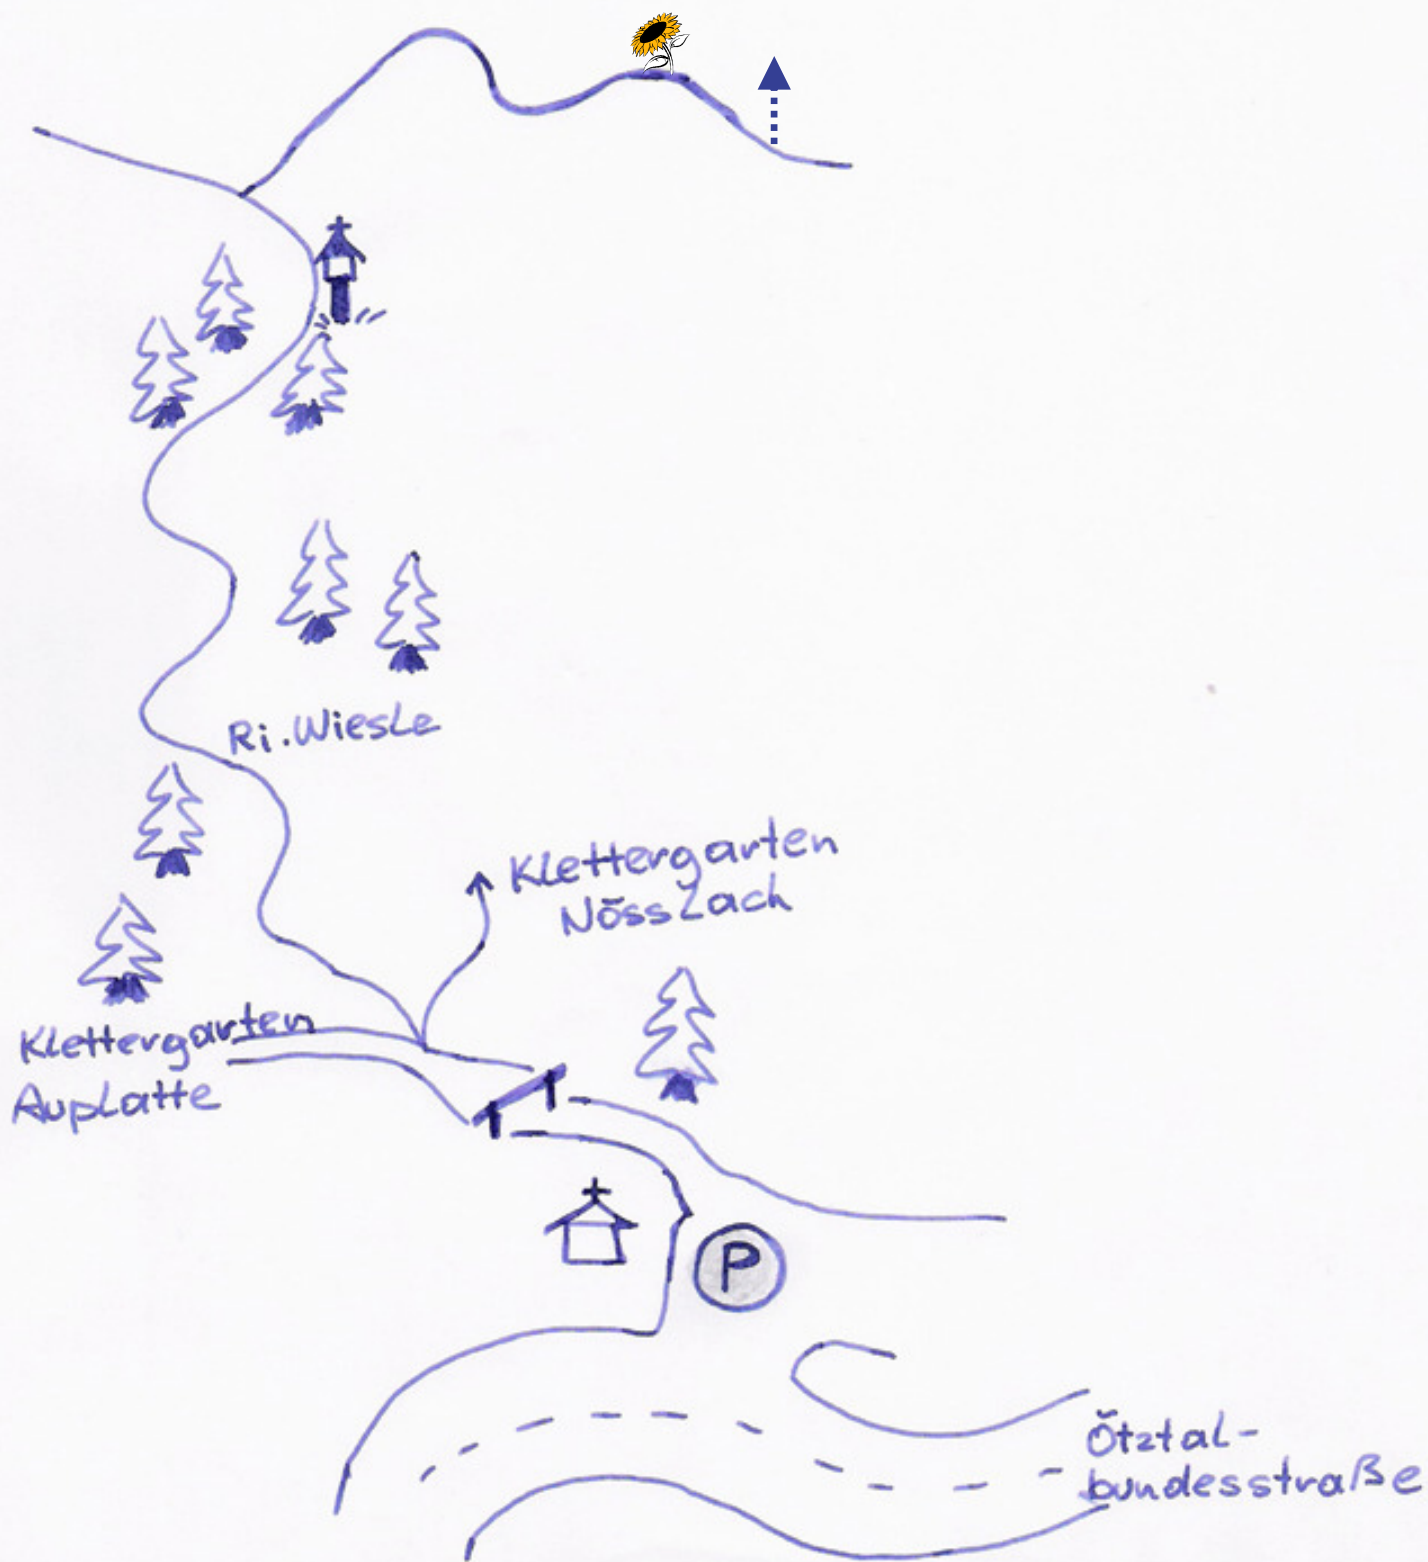 Ri. Wiesle
Klettergarten
Nösslach
Klettergarten
Auplatte
P
Ötztal-
bundesstraße